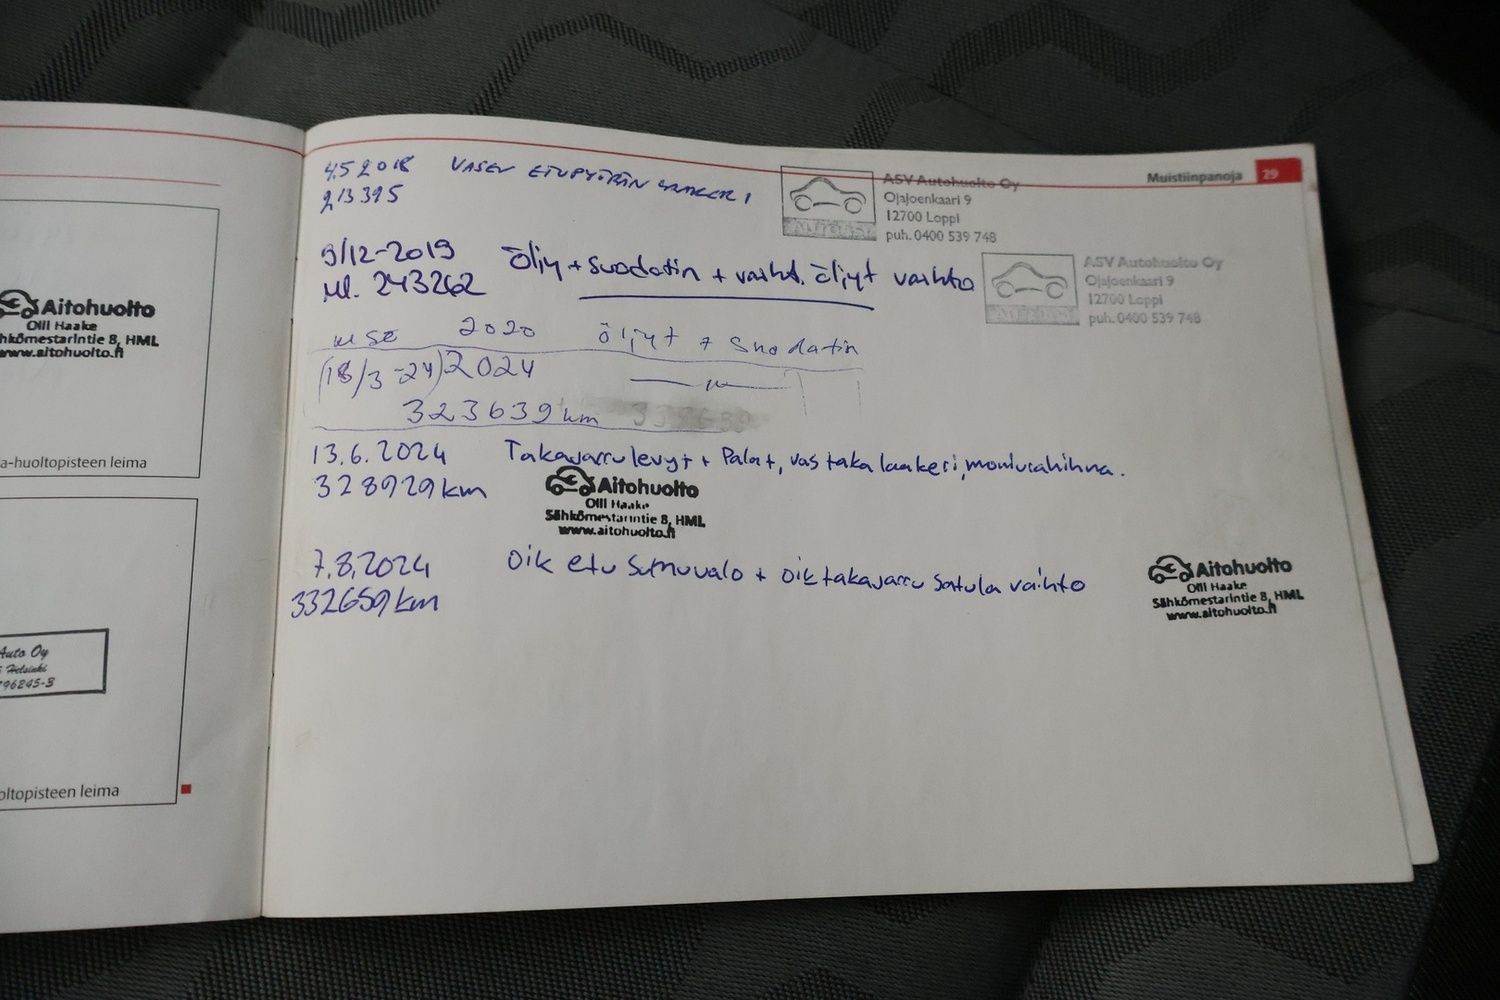 Aitohuolto
Olli Haake
hkömestarintie 8, HML
www.aitohuolto.fi
a-huoltopisteen leima
Auto Oy
Helsinki
796245-3
oltopisteen leima
Muistiinpanoja 29
4.5 2018 VASEN ETUPYÖRÄN LAAKERI
213395
ASV Autohuolto Oy
Ojajoenkaari 9
12700 Loppi
puh. 0400 539 748
9/12-2019 Öljy + suodatin + vaiht. öljyt vaihto
Ml. 243262
ASV Autohuolto Oy
Ojajoenkaari 9
12700 Loppi
puh. 0400 539 748
2020 öljyt + Suodatin
(18/3-24) 2024 —"—
323639 km
13.6.2024 Takajarrulevyt + Palat, vas taka laakeri, moniurahihna.
328929 km
Aitohuolto
Olli Haake
Sähkömestarintie 8, HML
www.aitohuolto.fi
7.8.2024 Oik etu sumuvalo + oik takajarru satula vaihto
332659 km
Aitohuolto
Olli Haake
Sähkömestarintie 8, HML
www.aitohuolto.fi